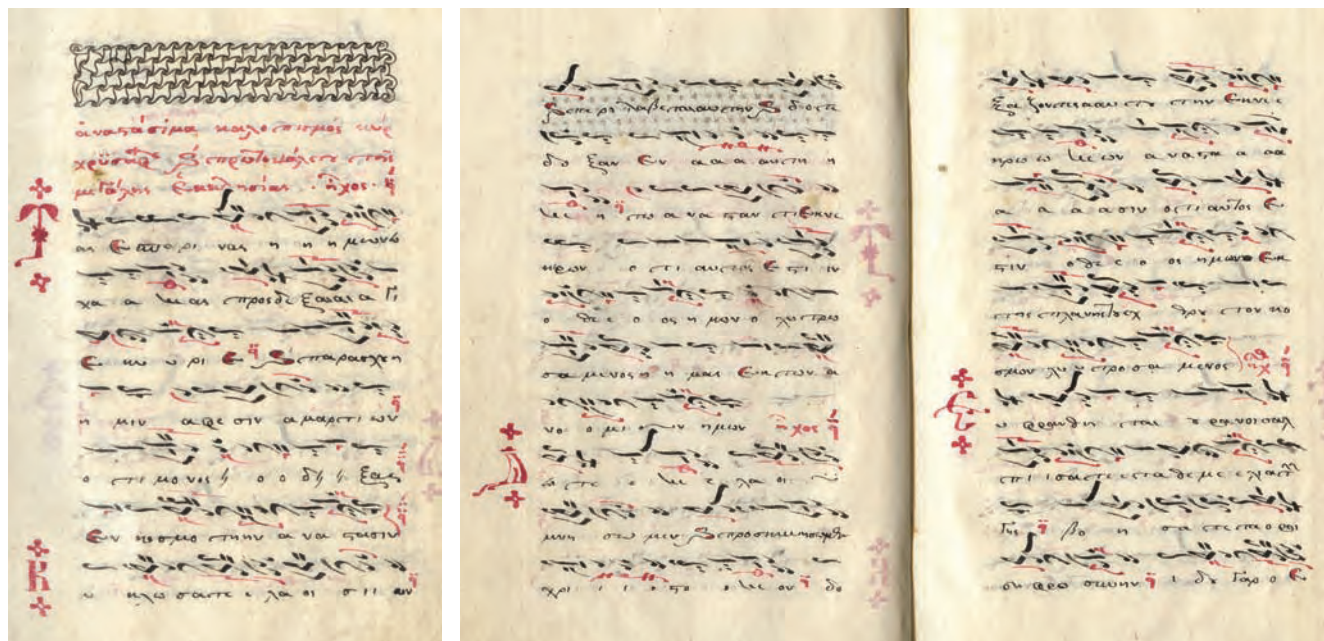 ἀναστάσιμα καλοπισμὸς κὺρ
χρυσάφου καὶ πρωτοψάλτου τῆς
μεγάλης ἐκκλησίας · ἦχος α
Τ ας εσπερινας η η η μων ευ
χα α ας προσδεξαι αι α γι
ε κυ υ ρι ε και παρασχου η
η μιν αφε σιν α μαρτι ων
ο τι μονος ει ο ο δει ει ξας
εν κοσμω την α να στασιν
Κ υ κλωσατε ε λαοι σι ι ων
και πε ρι λαβετε αυτην και δοτε
δο ξαν εν α α α αυτη η
τω α να σταν τι εκ νε
κρων ο τι αυτος ε στι ιν
ο θε ε ο ος η μων ο λυ τρω
σα μενος η η μας εκ των α
νο ο μι ων η μων ἦχος
Δ ευτε ε λα οι υ
μνη σω μεν και προσκυνησωμεν
χρι ι ι στο ον δο
ξα ζοντες αυτου την εκ νε ε
κρω ω ων α να στα α αα
α α α ασιν οτι αυτος ε
στιν ο θε ε ο ος η μων ο εκ
της πλανης του εχ θρου τον κο
σμον λυ υ τρωσα μενος ἦχ
Ε υ φρανθη τε ουρανοι σαλ
πι ισατε τα θεμε ε λια της
γης βο η σα τε τα ορη
ευ φρο συνην ι δου γαρ ο ε